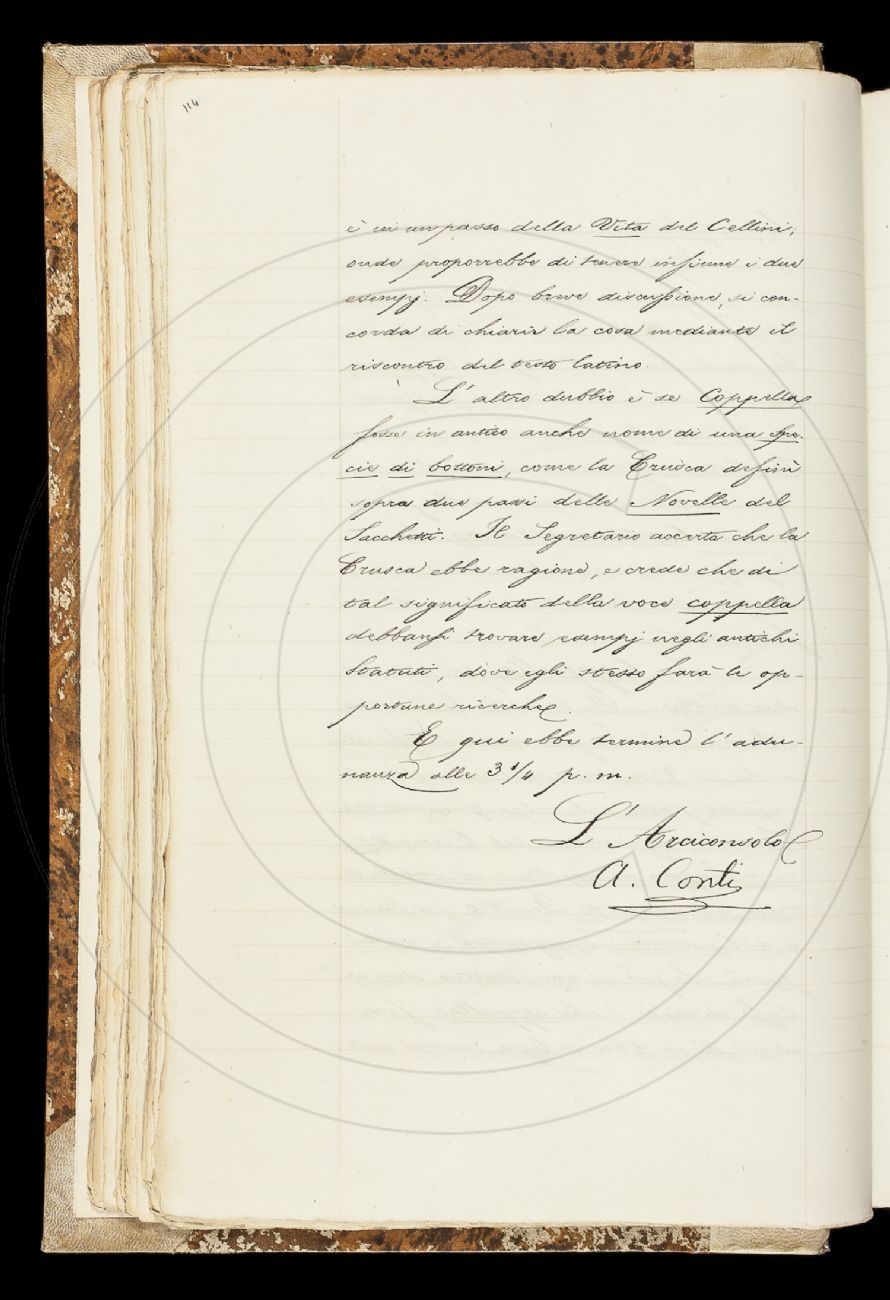 114
è in un passo della Vita del Cellini;
onde proporrebbe di tenere insieme i due
esempj. Dopo breve discussione, si con-
corda di chiarir la cosa mediante il
riscontro del testo latino.
L'altro dubbio è se Coppella
fosse in antico anche nome di una spe-
cie di bottoni, come la Crusca definì
sopra due passi delle Novelle del
Sacchetti. Il Segretario accerta che la
Crusca ebbe ragione, e crede che di
tal significato della voce coppella
debbansi trovare esempj negli antichi
Statuti, dove egli stesso farà le op-
portune ricerche.
E qui ebbe termine l'adu-
nanza alle 3 1/4 p. m.
L'Arciconsolo
A. Conti